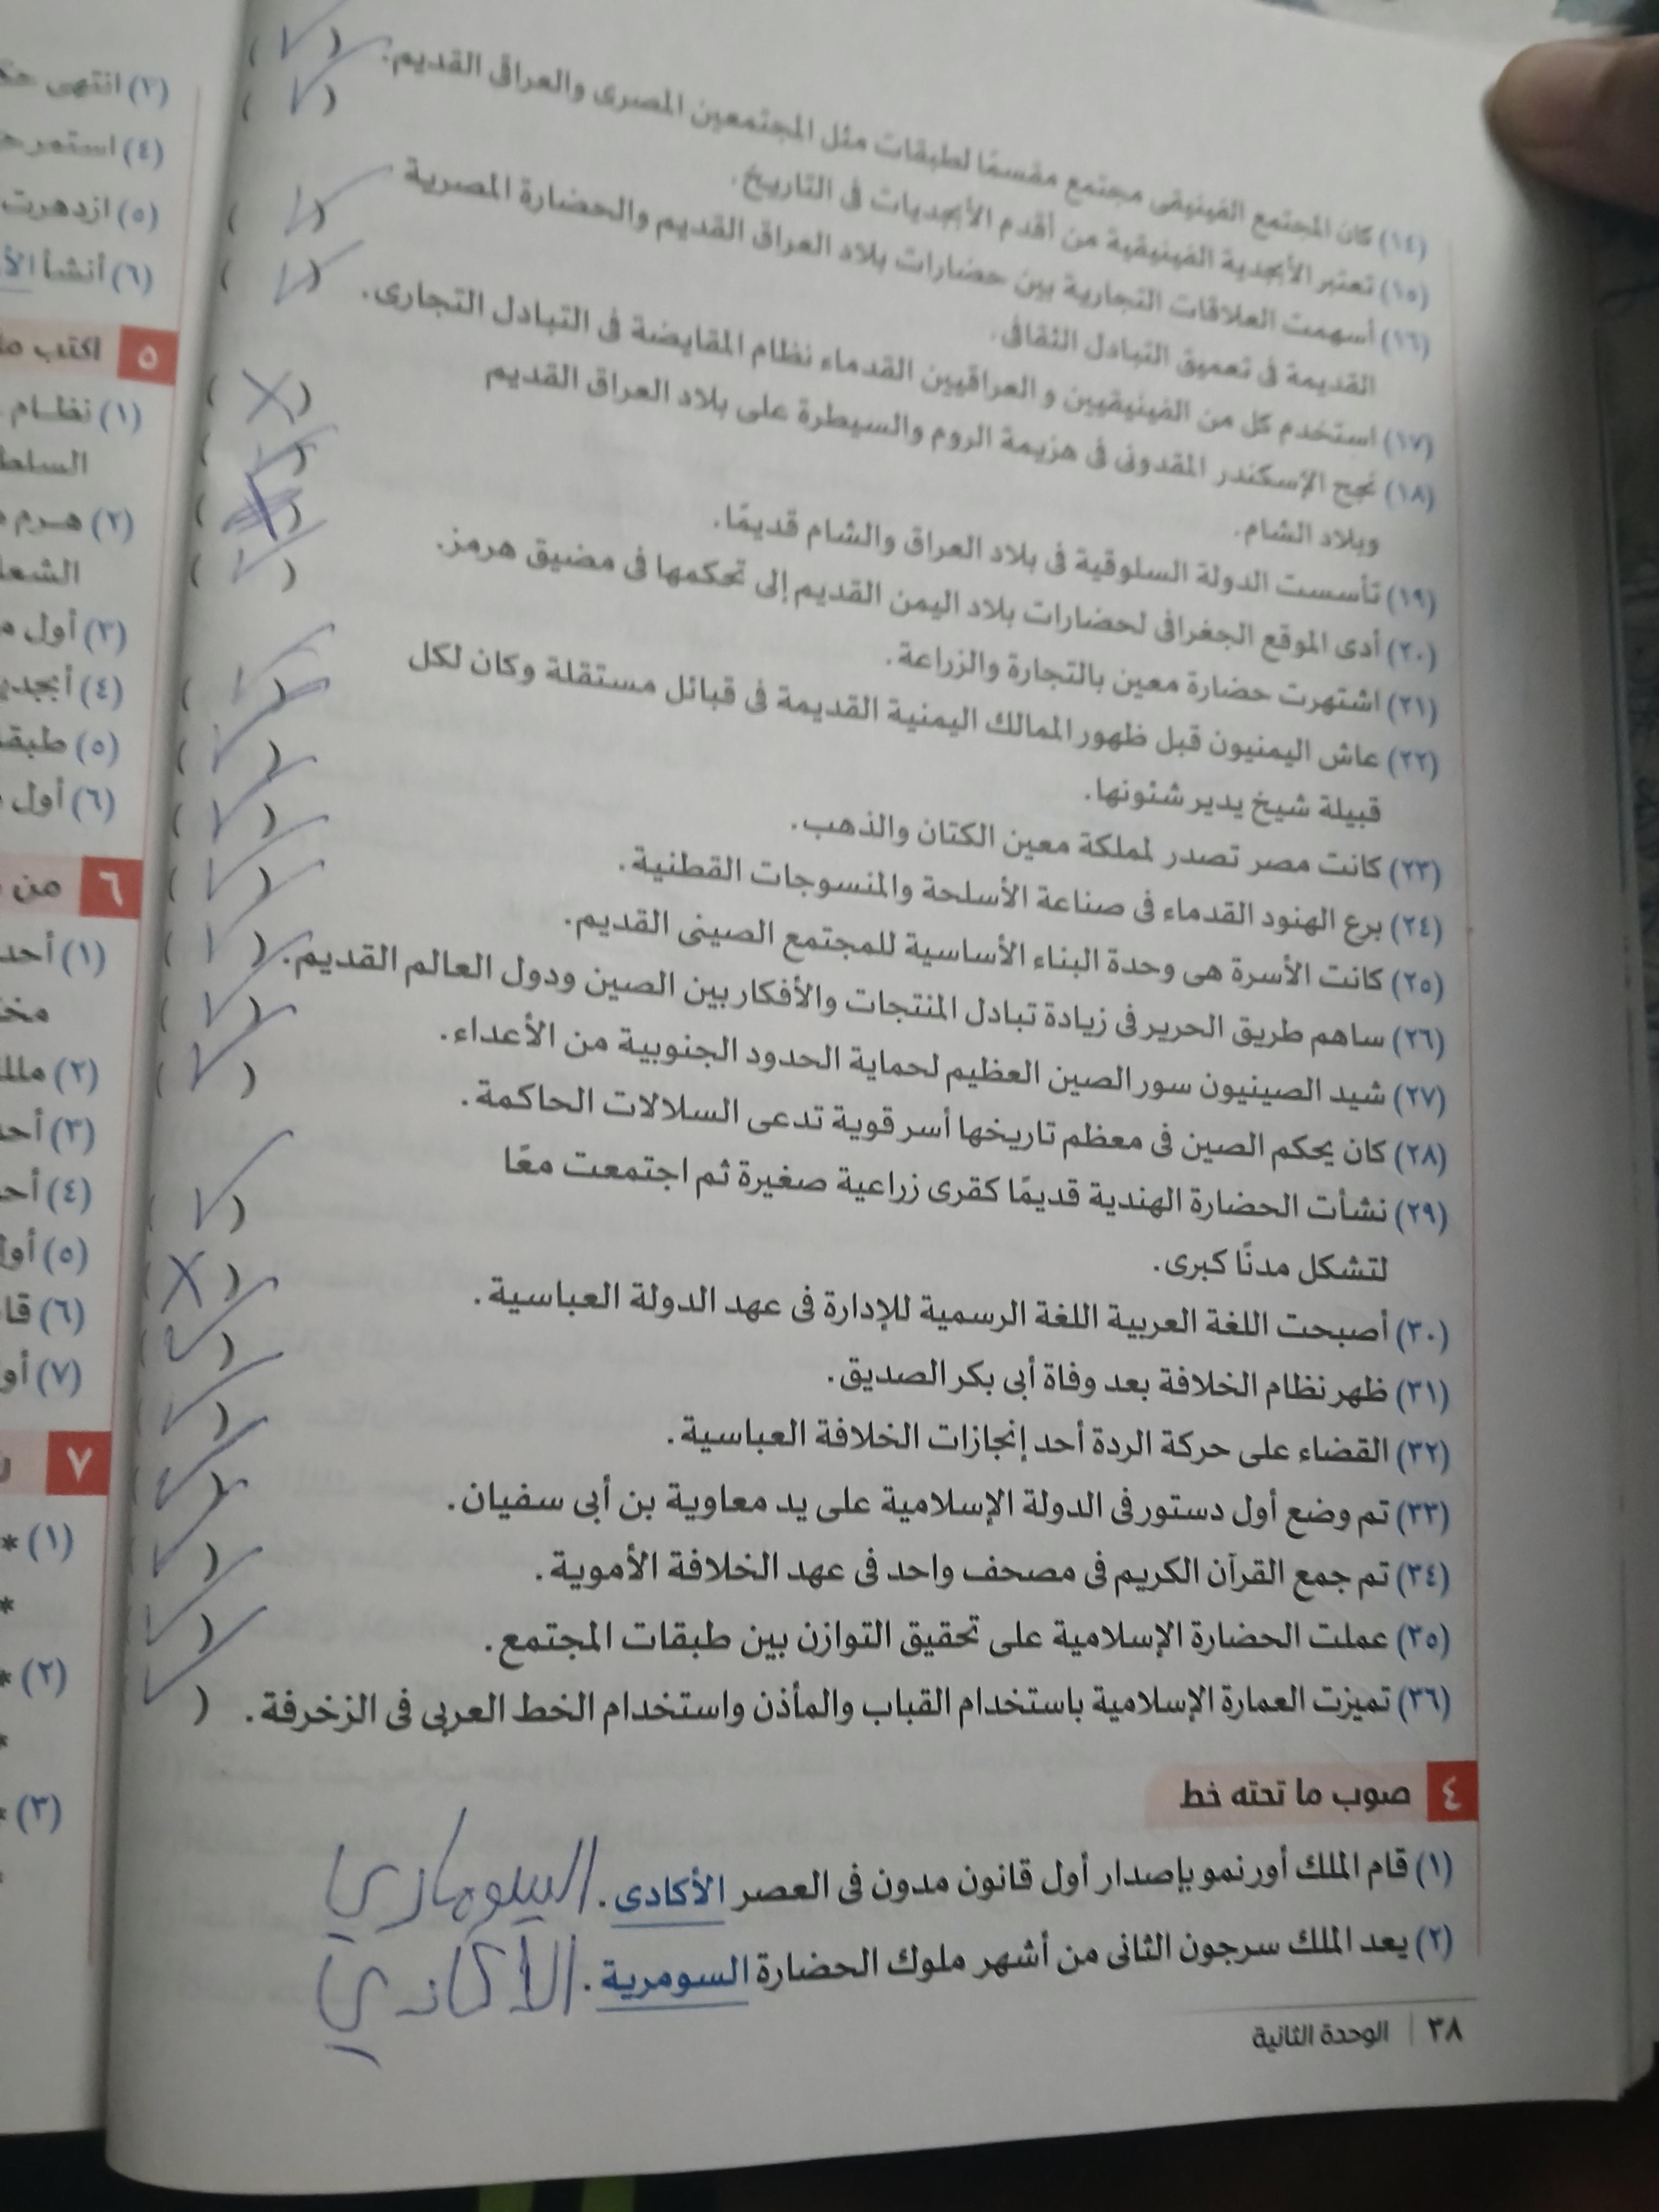 (١٤) كان المجتمع الفينيقى مجتمع مقسمًا لطبقات مثل المجتمعين المصرى والعراقى القديم. ( ✓ )
(١٥) تعتبر الأبجدية الفينيقية من أقدم الأبجديات فى التاريخ. ( ✓ )
(١٦) أسهمت العلاقات التجارية بين حضارات بلاد العراق القديم والحضارة المصرية
القديمة فى تعميق التبادل الثقافى. ( ✓ )
(١٧) استخدم كل من الفينيقيين و العراقيين القدماء نظام المقايضة فى التبادل التجارى. ( ✓ )
(١٨) نجح الإسكندر المقدونى فى هزيمة الروم والسيطرة على بلاد العراق القديم
وبلاد الشام. ( X )
(١٩) تأسست الدولة السلوقية فى بلاد العراق والشام قديمًا. ( ✓ )
(٢٠) أدى الموقع الجغرافى لحضارات بلاد اليمن القديم إلى تحكمها فى مضيق هرمز. ( )
(٢١) اشتهرت حضارة معين بالتجارة والزراعة. ( ✓ )
(٢٢) عاش اليمنيون قبل ظهور الممالك اليمنية القديمة فى قبائل مستقلة وكان لكل
قبيلة شيخ يدير شئونها. ( ✓ )
(٢٣) كانت مصر تصدر لمملكة معين الكتان والذهب. ( ✓ )
(٢٤) برع الهنود القدماء فى صناعة الأسلحة والمنسوجات القطنية. ( ✓ )
(٢٥) كانت الأسرة هى وحدة البناء الأساسية للمجتمع الصينى القديم. ( ✓ )
(٢٦) ساهم طريق الحرير فى زيادة تبادل المنتجات والأفكار بين الصين ودول العالم القديم. ( ✓ )
(٢٧) شيد الصينيون سور الصين العظيم لحماية الحدود الجنوبية من الأعداء. ( ✓ )
(٢٨) كان يحكم الصين فى معظم تاريخها أسر قوية تدعى السلالات الحاكمة. ( ✓ )
(٢٩) نشأت الحضارة الهندية قديمًا كقرى زراعية صغيرة ثم اجتمعت معًا
لتشكل مدنًا كبرى. ( ✓ )
(٣٠) أصبحت اللغة العربية اللغة الرسمية للإدارة فى عهد الدولة العباسية. ( X )
(٣١) ظهر نظام الخلافة بعد وفاة أبى بكر الصديق. ( ✓ )
(٣٢) القضاء على حركة الردة أحد إنجازات الخلافة العباسية. ( ✓ )
(٣٣) تم وضع أول دستور فى الدولة الإسلامية على يد معاوية بن أبى سفيان. ( ✓ )
(٣٤) تم جمع القرآن الكريم فى مصحف واحد فى عهد الخلافة الأموية. ( ✓ )
(٣٥) عملت الحضارة الإسلامية على تحقيق التوازن بين طبقات المجتمع. ( ✓ )
(٣٦) تميزت العمارة الإسلامية باستخدام القباب والمآذن واستخدام الخط العربى فى الزخرفة. ( ✓ )
٤ صوب ما تحته خط
(١) قام الملك أورنمو بإصدار أول قانون مدون فى العصر الأكادى.
(٢) يعد الملك سرجون الثانى من أشهر ملوك الحضارة السومرية. الأكادي
٣٨ | الوحدة الثانية
(٣) انتهى
(٤) استمر
(٥) ازدهرت
(٦) أنشأ
٥ اكتب
(١) نظام
(٢) هرم
(٣) أول
(٤)
(٥)
(٦) أول
٦ من
(١)
(٢)
(٣)
(٤)
(٥)
(٦)
(٧)
٧
(١) *
*
(٢) *
*
(٣) *